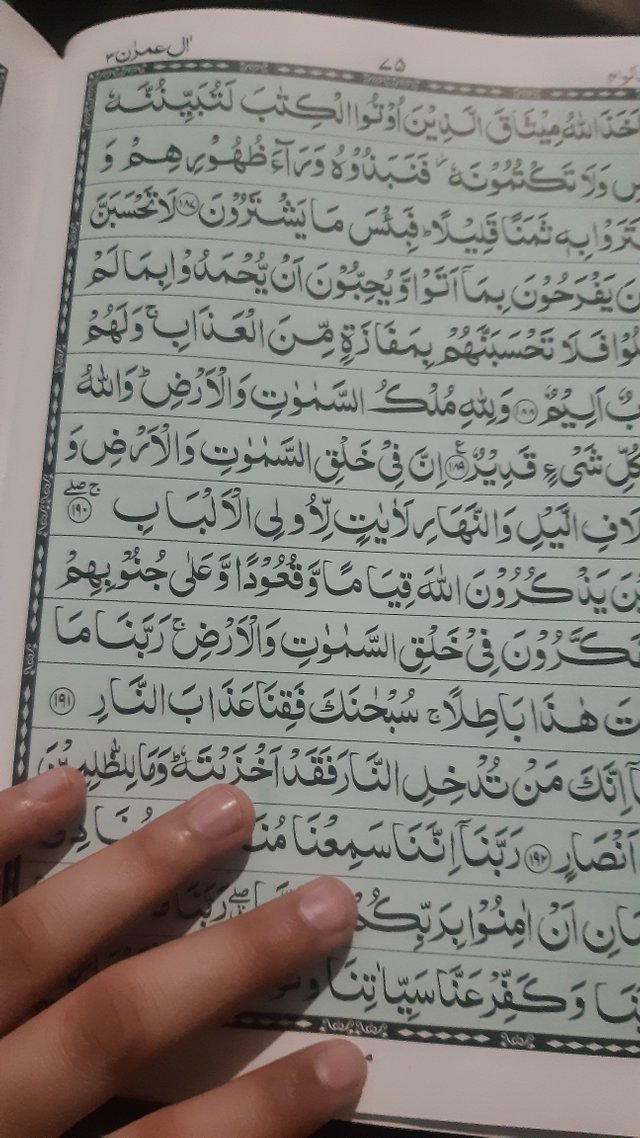 اٰل عمرٰن ۳
۷۵
اَخَذَ اللّٰهُ مِیْثَاقَ الَّذِیْنَ اُوْتُوا الْكِتٰبَ لَتُبَیِّنُنَّهٗ
وَلَا تَكْتُمُوْنَهٗ ؗ فَنَبَذُوْهُ وَرَآءَ ظُهُوْرِهِمْ وَ
بِهٖ ثَمَنًا قَلِیْلًا ؕ فَبِئْسَ مَا یَشْتَرُوْنَ ۱۸۷ لَا تَحْسَبَنَّ
یَفْرَحُوْنَ بِمَاۤ اَتَوْا وَّیُحِبُّوْنَ اَنْ یُّحْمَدُوْا بِمَا لَمْ
فَلَا تَحْسَبَنَّهُمْ بِمَفَازَةٍ مِّنَ الْعَذَابِ ۚ وَلَهُمْ
اَلِیْمٌ ۱۸۸ وَلِلّٰهِ مُلْكُ السَّمٰوٰتِ وَالْاَرْضِ ؕ وَاللّٰهُ
كُلِّ شَیْءٍ قَدِیْرٌ ۱۸۹ ع اِنَّ فِیْ خَلْقِ السَّمٰوٰتِ وَالْاَرْضِ وَ
الَّیْلِ وَالنَّهَارِ لَاٰیٰتٍ لِّاُولِی الْاَلْبَابِ ۱۹۰ ۚۖ
یَذْكُرُوْنَ اللّٰهَ قِیَامًا وَّقُعُوْدًا وَّعَلٰی جُنُوْبِهِمْ
فِیْ خَلْقِ السَّمٰوٰتِ وَالْاَرْضِ ۚ رَبَّنَا مَا
هٰذَا بَاطِلًا ۚ سُبْحٰنَكَ فَقِنَا عَذَابَ النَّارِ ۱۹۱
اِنَّكَ مَنْ تُدْخِلِ النَّارَ فَقَدْ اَخْزَیْتَهٗ ؕ وَمَا لِلظّٰلِمِیْنَ
اَنْصَارٍ ۱۹۲ رَبَّنَاۤ اِنَّنَا سَمِعْنَا
اَنْ اٰمِنُوْا بِرَبِّكُمْ ۖ رَبَّنَا
وَكَفِّرْ عَنَّا سَیِّاٰتِنَا